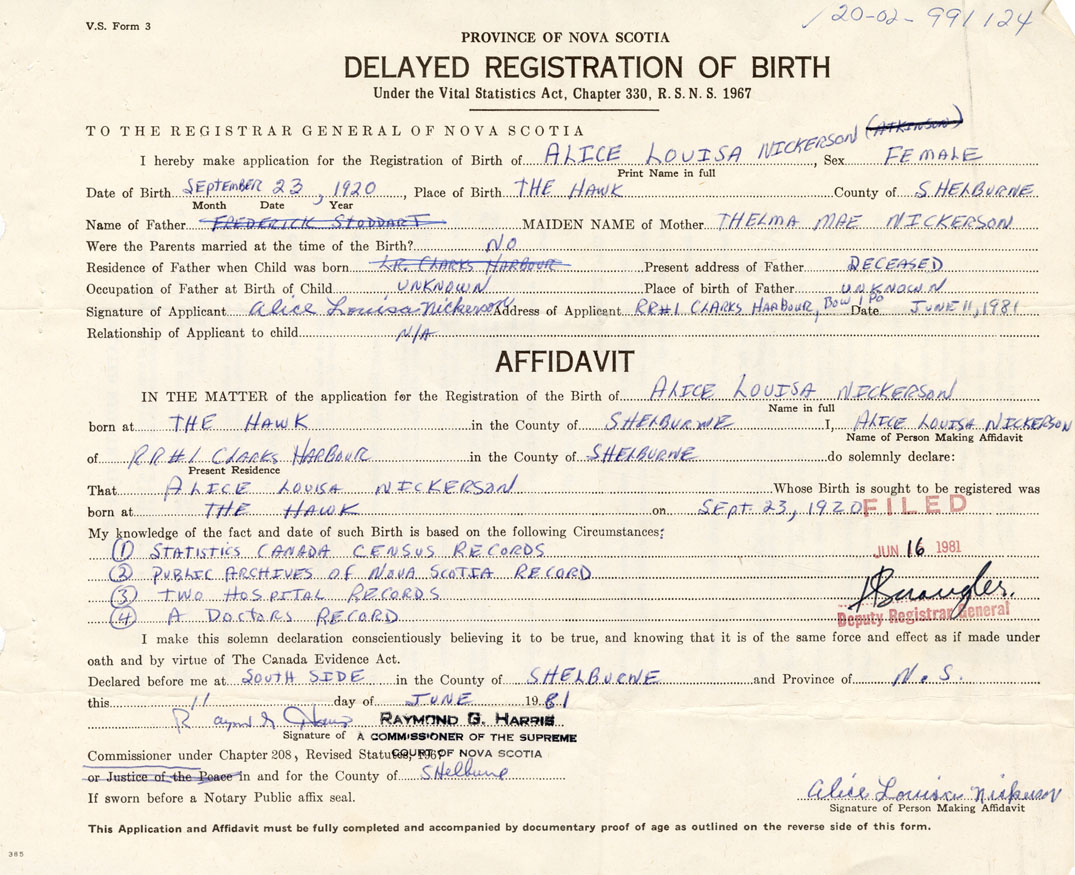 V.S. Form 3
20-02-991124
PROVINCE OF NOVA SCOTIA
DELAYED REGISTRATION OF BIRTH
Under the Vital Statistics Act, Chapter 330, R. S. N. S. 1967
TO THE REGISTRAR GENERAL OF NOVA SCOTIA
I hereby make application for the Registration of Birth of ALICE LOUISA NICKERSON (ATKINSON), Sex FEMALE
Print Name in full
Date of Birth SEPTEMBER 23, 1920, Place of Birth THE HAWK County of SHELBURNE
Month Date Year
Name of Father FREDERICK STODDART MAIDEN NAME of Mother THELMA MAE NICKERSON
Were the Parents married at the time of the Birth? NO
Residence of Father when Child was born LR. CLARKS HARBOUR Present address of Father DECEASED
Occupation of Father at Birth of Child UNKNOWN Place of birth of Father UNKNOWN
Signature of Applicant Alice Louisa Nickerson Address of Applicant RR#1 CLARKS HARBOUR, 1 PO Date JUNE 11, 1981
Relationship of Applicant to child N/A
AFFIDAVIT
IN THE MATTER of the application for the Registration of the Birth of ALICE LOUISA NICKERSON
Name in full
born at THE HAWK in the County of SHELBURNE I, ALICE LOUISA NICKERSON
Name of Person Making Affidavit
of RR#1 CLARKS HARBOUR in the County of SHELBURNE do solemnly declare:
Present Residence
That ALICE LOUISA NICKERSON Whose Birth is sought to be registered was
born at THE HAWK on SEPT. 23, 1920
FILED
My knowledge of the fact and date of such Birth is based on the following Circumstances:
(1) STATISTICS CANADA CENSUS RECORDS
JUN 16 1981
(2) PUBLIC ARCHIVES OF NOVA SCOTIA RECORD
(3) TWO HOSPITAL RECORDS
(4) A DOCTORS RECORD
Deputy Registrar General
I make this solemn declaration conscientiously believing it to be true, and knowing that it is of the same force and effect as if made under
oath and by virtue of The Canada Evidence Act.
Declared before me at SOUTH SIDE in the County of SHELBURNE and Province of N.S.
this 11 day of JUNE 1981
Raymond G Harris RAYMOND G. HARRIS
Signature of A COMMISSIONER OF THE SUPREME
Commissioner under Chapter 208, Revised Statutes, 1967 COURT OF NOVA SCOTIA
or Justice of the Peace in and for the County of Shelburne
If sworn before a Notary Public affix seal.
Alice Louisa Nickerson
Signature of Person Making Affidavit
This Application and Affidavit must be fully completed and accompanied by documentary proof of age as outlined on the reverse side of this form.
385